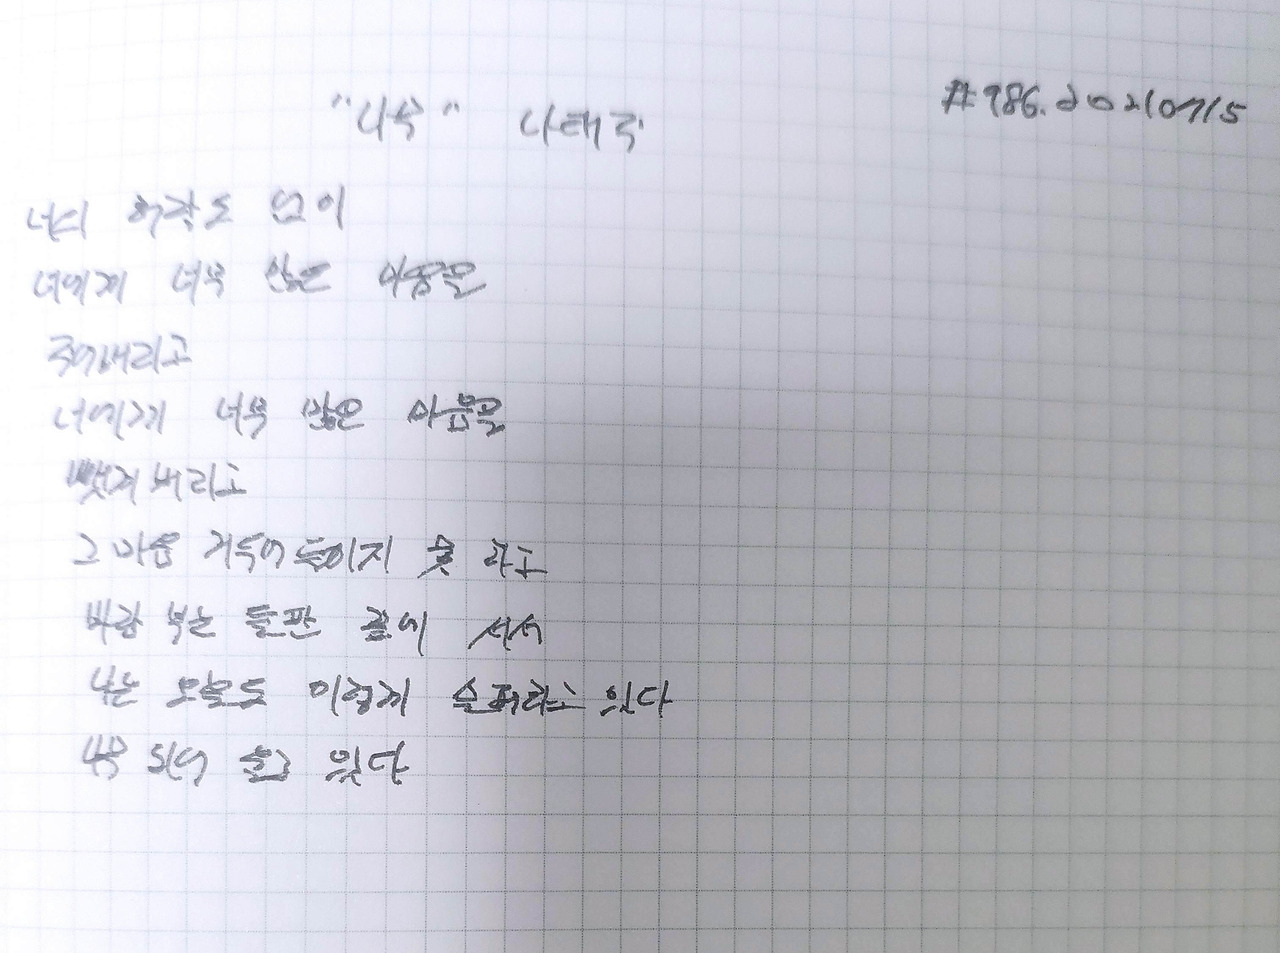 "나무" 나태주
#986. 20210715
너의 허락도 없이
너에게 너무 많은 마음을
주어버리고
너에게 너무 많은 마음을
뺏겨버리고
그 마음 거두어 들이지 못 하고
바람 부는 들판 끝에 서서
나는 오늘도 이렇게 슬퍼하고 있다
나무 되어 울고 있다